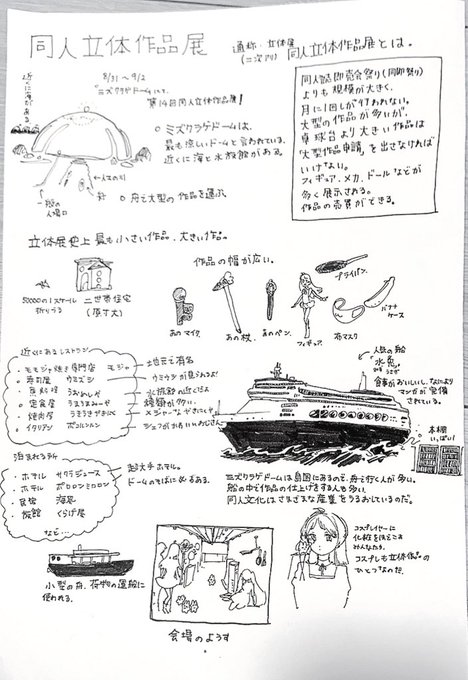 同人立体作品展
通称:立体展
(二次アリ)
同人立体作品展とは。
近くに海がある。
8/31〜9/2
ミズクラゲドームにて、
第14回同人立体作品展!
同人誌即売会祭り(同即祭り)
よりも規模が大きく、
月に1回しか行われない。
大型の作品が多いが、
卓球台より大きい作品は
「大型作品申請」を出さなければ
いけない。
フィギュア、メカ、ドールなどが
多く展示される。
作品の売買ができる。
○ミズクラゲドームは、
最も涼しいドームと言われている。
近くに海と水族館がある。
一般の
入場口
○舟で大型の作品を運ぶ。
立体展史上最も小さい作品、大きい作品。
50000の1スケール
折りづる
二世帯住宅
(原寸大)
作品の幅が広い。
フライパン。
あのマイク。
あの杖。
あのペン。
フィギュア。
石マスク
バナナ
ケース
近くにあるレストラン
・モモジャ焼き専門店 モジャ
地元で有名
・寿司屋 ウミズシ
ウミウシが見られるよ!
水族館の近くだよ
・定食屋
種類が多い。
・焼肉屋
・イタリアン
シェフがかわいいおじさん
人気の船
"水兎"
食事がおいしいし、なにより
マンガが完備
されている。
本棚
いっぱい!
泊まれる所
・ホテル サクラジュース
超大手ホテル。
・ホテル ポロロンミロロン
ドームのそばに山ある。
・民宿 海恋
・旅館 くらげ屋
など…
ミズクラゲドームは島国にあるので、舟で行く人が多い。
船の中で作品の仕上げをする人も多い。
同人文化はさまざまな産業をうるおしているのだ。
小型の舟、荷物の運搬に
使われる。
会場のようす
コスプレイヤーに
化粧をほどこす
みんなたち。
コスプレも立体作品の
ひとつなのだ。